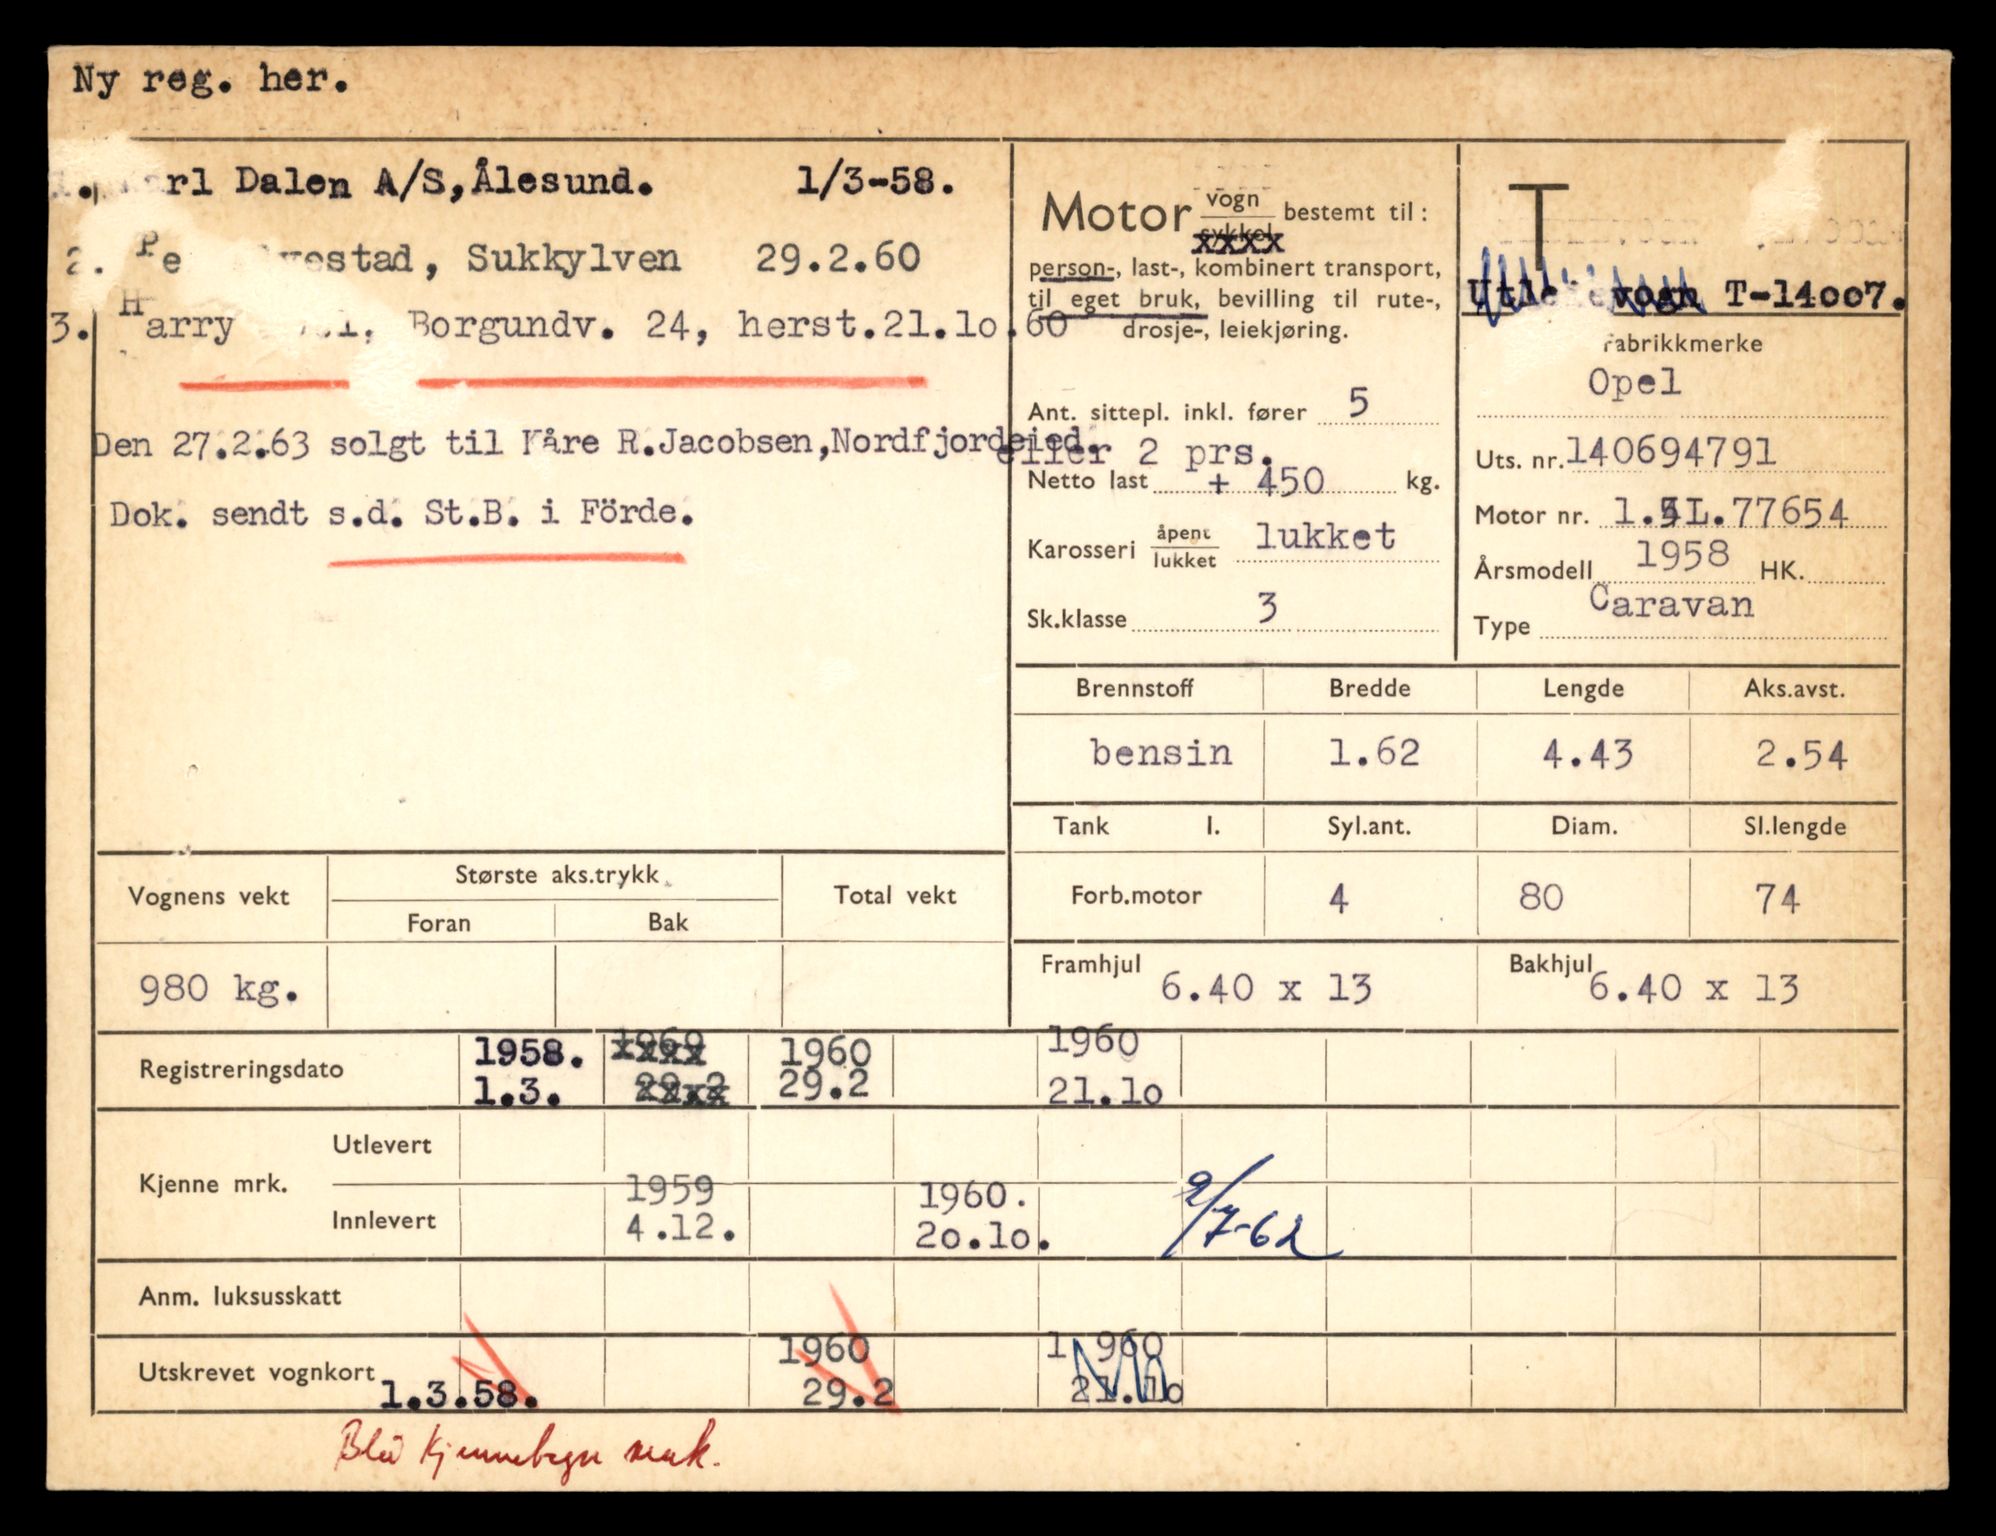 Ny reg. her.
1. Karl Dalen A/S, Ålesund. 1/3-58.
2. Pe estad, Sukkylven 29.2.60
3. Harry Borgundv. 24, herst. 21.10.60
Den 27.2.63 solgt til Kåre R. Jacobsen, Nordfjordeied.
Dok. sendt s.d. St.B. i Förde.
Motor vogn/sykkel bestemt til:
xxxx
person-, last-, kombinert transport,
til eget bruk, bevilling til rute-,
drosje-, leiekjøring.
Ant. sittepl. inkl. fører 5
eller 2 prs.
Netto last + 450 kg.
Karosseri åpent/lukket lukket
Sk.klasse 3
T
Utleievogn T-14007.
Fabrikkmerke
Opel
Uts. nr. 140694791
Motor nr. 1.5L.77654
Årsmodell 1958 HK.
Type Caravan
Brennstoff Bredde Lengde Aks.avst.
bensin 1.62 4.43 2.54
Tank l. Syl.ant. Diam. Sl.lengde
Forb.motor 4 80 74
Framhjul 6.40 x 13 Bakhjul 6.40 x 13
Vognens vekt Største aks.trykk Total vekt
Foran Bak
980 kg.
Registreringsdato 1958. 1960 1960 1960
1.3. 29.2 29.2 21.10
Kjenne mrk. Utlevert
Innlevert 1959 1960. 9/7-62
4.12. 20.10.
Anm. luksusskatt
Utskrevet vognkort 1960 1960
1.3.58. 29.2 21.10
Blå kjennetegn